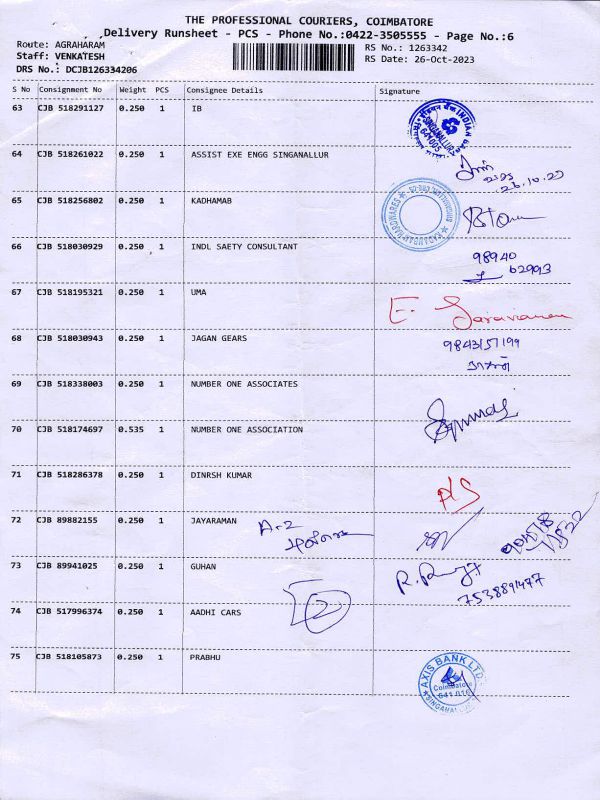 THE PROFESSIONAL COURIERS, COIMBATORE
Delivery Runsheet - PCS - Phone No.:0422-3505555 - Page No.:6
Route: AGRAHARAM
RS No.: 1263342
Staff: VENKATESH
RS Date: 26-Oct-2023
DRS No.: DCJB126334206
S No Consignment No Weight PCS Consignee Details Signature
63 CJB 518291127 0.250 1 IB
INDIAN BANK SINGANALLUR 641005
64 CJB 518261022 0.250 1 ASSIST EXE ENGG SINGANALLUR
26.10.23
65 CJB 518256802 0.250 1 KADHAMAB
HARDWARES
66 CJB 518030929 0.250 1 INDL SAETY CONSULTANT
98940
62993
67 CJB 518195321 0.250 1 UMA
E. Saravanan
68 CJB 518030943 0.250 1 JAGAN GEARS
9843151199
69 CJB 518338003 0.250 1 NUMBER ONE ASSOCIATES
70 CJB 518174697 0.535 1 NUMBER ONE ASSOCIATION
71 CJB 518286378 0.250 1 DINRSH KUMAR
72 CJB 89882155 0.250 1 JAYARAMAN
A-2
73 CJB 89941025 0.250 1 GUHAN
7538891477
74 CJB 517996374 0.250 1 AADHI CARS
2
75 CJB 518105873 0.250 1 PRABHU
AXIS BANK LTD. Coimbatore 641 016